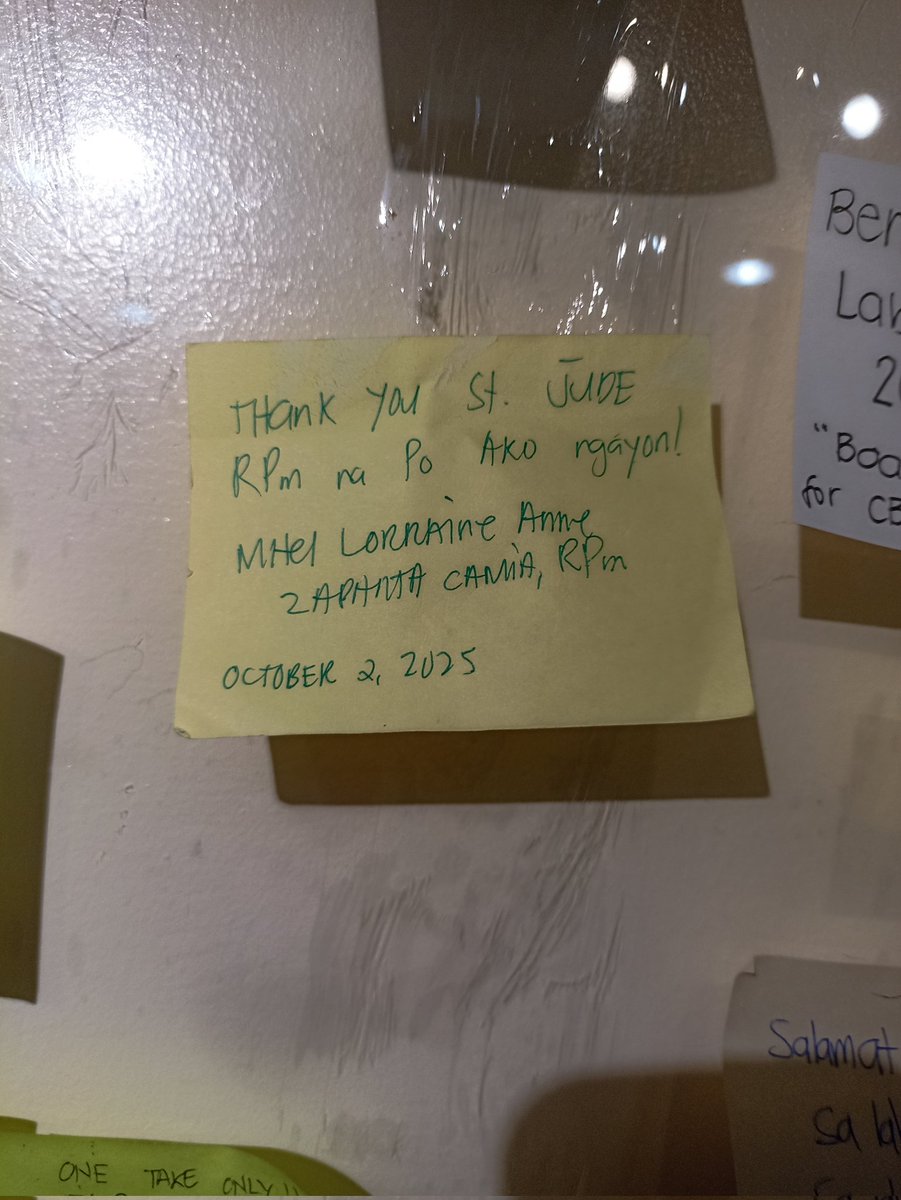 THANK YOU St. JUDE
RPm na Po AKO ngayon!
MHEI LORRAINE ANNE
ZAPANTA CAMIA, RPm
OCTOBER 2, 2025
Ber
La
2
"Boa
for CB
Salamat
sa
ONE TAKE ONLY!!